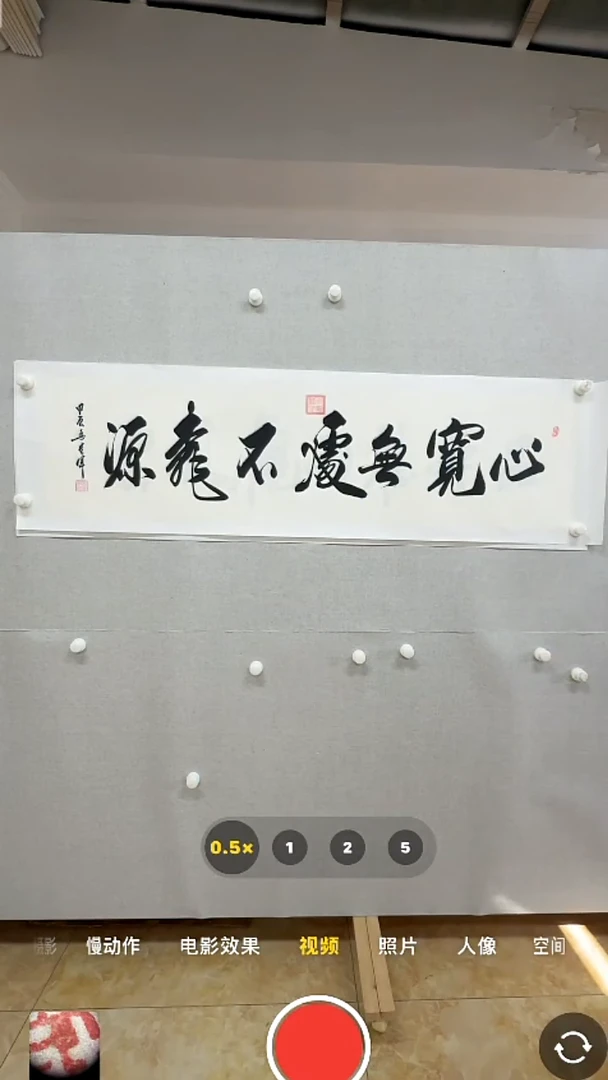 心寬無處不桃源
甲辰
0.5× 1 2 5
慢动作 电影效果 视频 照片 人像 空间